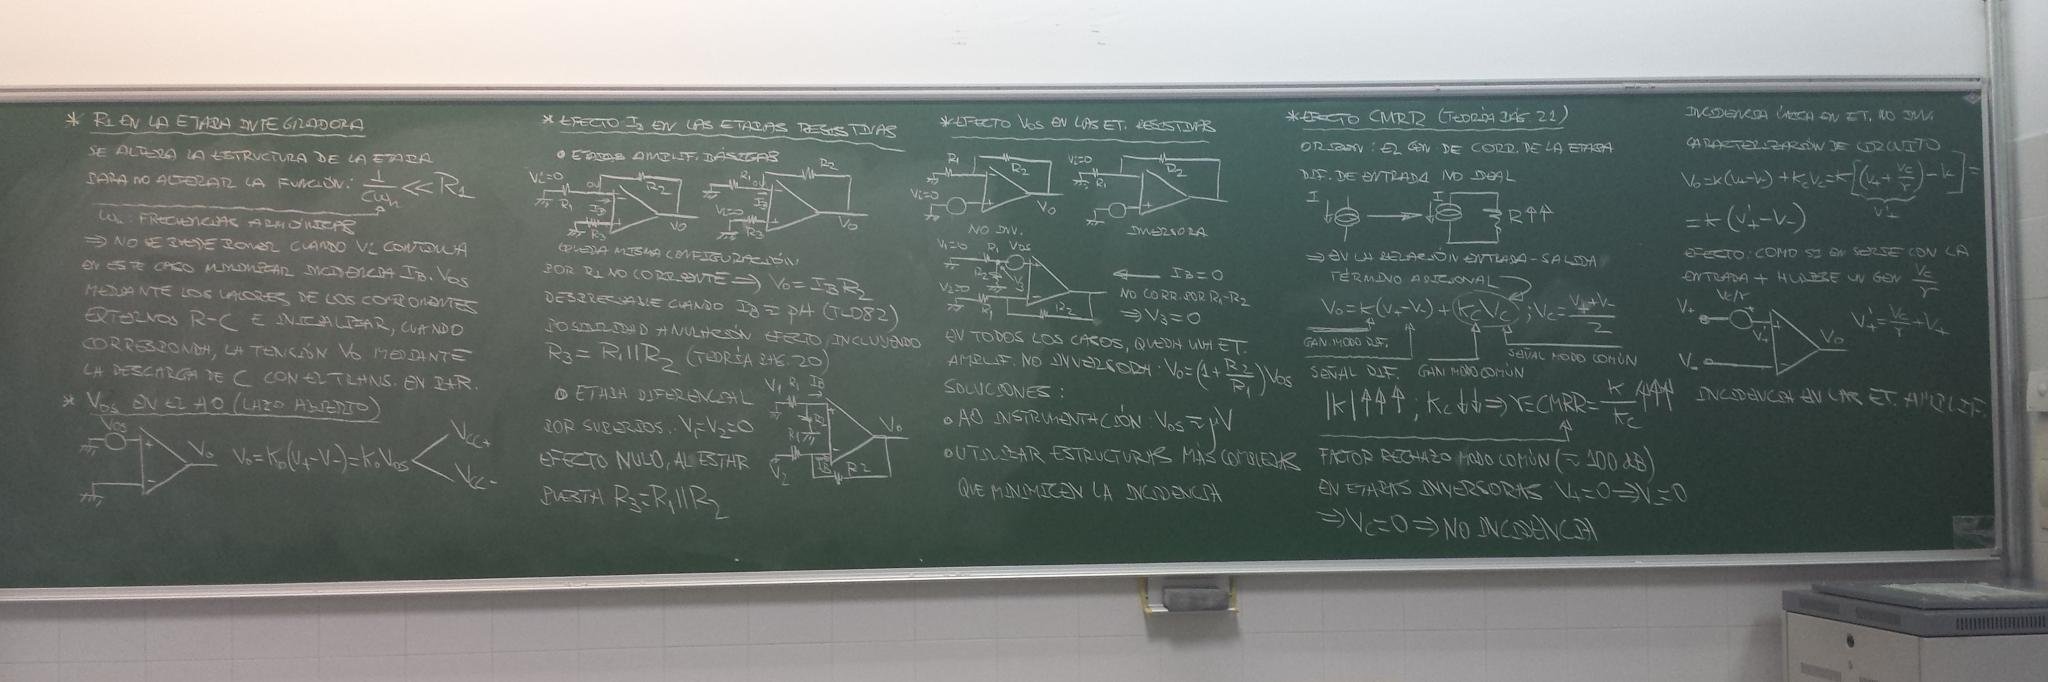 * R1 EN LA ETAPA INTEGRADORA
SE ALTERA LA ESTRUCTURA DE LA ETAPA
PARA NO ALTERAR LA FUNCIÓN: 1/Cωh << R1
ωh: FRECUENCIAS ARMÓNICAS
⇒ NO SE PUEDE PONER CUANDO Vi CONTINUA
EN ESTE CASO MINIMIZAR INCIDENCIA IB, VOS
MEDIANTE LOS VALORES DE LOS COMPONENTES
EXTERNOS R-C E INICIALIZAR, CUANDO
CORRESPONDA, LA TENSIÓN Vo MEDIANTE
LA DESCARGA DE C CON EL TRANS. EN
* VOS EN EL AO (LAZO ABIERTO)
VOS
+
-
Vo
Vo=Ko(V+-V-)=KoVOS
VCC+
VCC-
* EFECTO IB EN LAS ETAPAS RESISTIVAS
o ETAPAS AMPLIF. BÁSICAS
Vi=0 R1 0V R2 IB R3 Vo
R1 0V R2 IB Vi=0 R3 Vo
QUEDA MISMA CONFIGURACIÓN
POR R1 NO CORRIENTE ⇒ Vo=IBR2
DESPRECIABLE CUANDO IB ≈ pA (TL082)
POSIBILIDAD ANULACIÓN EFECTO, INCLUYENDO
R3=R1||R2 (TEORÍA PÁG. 20)
o ETAPA DIFERENCIAL
POR SUPERPOS.: V1=V2=0
EFECTO NULO, AL ESTAR
PUESTA R3=R1||R2
V1 R1 IB
R2
R1
V2 IB R2
Vo
* EFECTO VOS EN LAS ET. RESISTIVAS
R1 R2 Vi=0 Vo
Vi=0 R1 R2 Vo
NO INV.
INVERSORA
V1=0 R1 VOS
R2
V2=0 R1
R2
IB=0
NO CORR. POR R1-R2
⇒ V3=0
EN TODOS LOS CASOS, QUEDA UNA ET.
AMPLIF. NO INVERSORA: Vo=(1+R2/R1)VOS
SOLUCIONES:
o AO INSTRUMENTACIÓN: VOS ≈ μV
o UTILIZAR ESTRUCTURAS MÁS COMPLEJAS
QUE MINIMICEN LA INCIDENCIA
* EFECTO CMRR (TEORÍA PÁG. 21)
ORIGEN: EL GEN DE CORR. DE LA ETAPA
DIF. DE ENTRADA NO IDEAL
I
I
R↑↑
⇒ EN LA RELACIÓN ENTRADA-SALIDA
TÉRMINO ADICIONAL
Vo=K(V+-V-)+KcVc; Vc=(V++V-)/2
GAN. MODO DIF.
SEÑAL DIF.
GAN MODO COMÚN
SEÑAL MODO COMÚN
|K|↑↑↑; Kc↓↓ ⇒ r=CMRR=K/Kc ↑↑↑
FACTOR RECHAZO MODO COMÚN (≈ 100 dB)
EN ETAPAS INVERSORAS V+=0 ⇒ V-=0
⇒ Vc=0 ⇒ NO INCIDENCIA
INCIDENCIA ÚNICA EN ET. NO INV.
CARACTERIZACIÓN DE CIRCUITO
Vo=K(V+-V-)+KcVc=K[(V++Vc/r)-V-]=
V'+
=K(V'+-V-)
EFECTO: COMO SI EN SERIE CON LA
ENTRADA + HUBIESE UN GEN Vc/r
Vc/r
V+
V'+
V-
Vo
V'+=Vc/r+V+
INCIDENCIA EN LAS ET. AMPLIF.